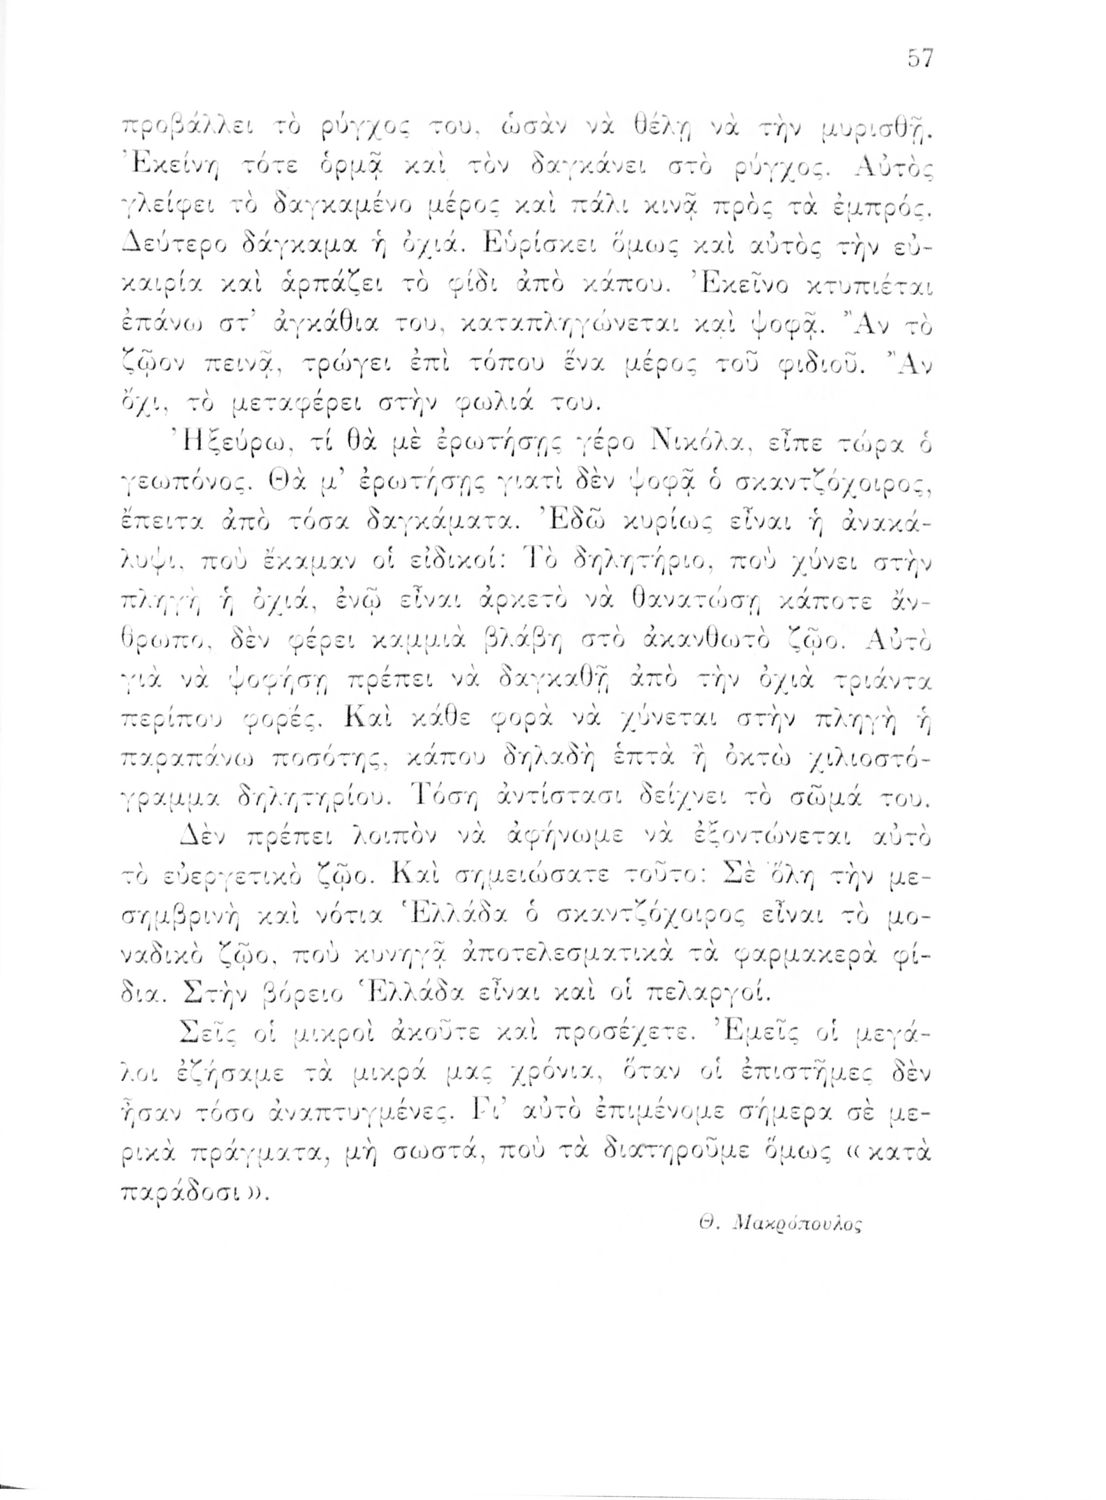 57
προβάλλει τὸ ρύγχος του, ὡσὰν νὰ θέλῃ νὰ τὴν μυρισθῇ.
Ἐκείνη τότε ὁρμᾷ καὶ τὸν δαγκάνει στὸ ρύγχος. Αὐτὸς
γλείφει τὸ δαγκαμένο μέρος καὶ πάλι κινᾷ πρὸς τὰ ἐμπρός.
Δεύτερο δάγκαμα ἡ ὀχιά. Εὑρίσκει ὅμως καὶ αὐτὸς τὴν εὐ-
καιρία καὶ ἁρπάζει τὸ φίδι ἀπὸ κάπου. Ἐκεῖνο κτυπιέται
ἐπάνω στ’ ἀγκάθια του, καταπληγώνεται καὶ ψοφᾷ. Ἂν τὸ
ζῷον πεινᾷ, τρώγει ἐπὶ τόπου ἕνα μέρος τοῦ φιδιοῦ. Ἂν
ὄχι, τὸ μεταφέρει στὴν φωλιά του.
Ἠξεύρω, τί θὰ μὲ ἐρωτήσῃς γέρο Νικόλα, εἶπε τώρα ὁ
γεωπόνος. Θὰ μ’ ἐρωτήσῃς γιατὶ δὲν ψοφᾷ ὁ σκαντζόχοιρος,
ἔπειτα ἀπὸ τόσα δαγκάματα. Ἐδῶ κυρίως εἶναι ἡ ἀνακά-
λυψι, ποὺ ἔκαμαν οἱ εἰδικοί: Τὸ δηλητήριο, ποὺ χύνει στὴν
πληγὴ ἡ ὀχιά, ἐνῷ εἶναι ἀρκετὸ νὰ θανατώσῃ κάποτε ἄν-
θρωπο, δὲν φέρει καμμιὰ βλάβη στὸ ἀκανθωτὸ ζῷο. Αὐτὸ
γιὰ νὰ ψοφήσῃ πρέπει νὰ δαγκαθῇ ἀπὸ τὴν ὀχιὰ τριάντα
περίπου φορές. Καὶ κάθε φορὰ νὰ χύνεται στὴν πληγὴ ἡ
παραπάνω ποσότης, κάπου δηλαδὴ ἑπτὰ ἢ ὀκτὼ χιλιοστό-
γραμμα δηλητηρίου. Τόση ἀντίστασι δείχνει τὸ σῶμά του.
Δὲν πρέπει λοιπὸν νὰ ἀφήνωμε νὰ ἐξοντώνεται αὐτὸ
τὸ εὐεργετικὸ ζῷο. Καὶ σημειώσατε τοῦτο: Σὲ ὅλη τὴν με-
σημβρινὴ καὶ νότια Ἑλλάδα ὁ σκαντζόχοιρος εἶναι τὸ μο-
ναδικὸ ζῷο, ποὺ κυνηγᾷ ἀποτελεσματικὰ τὰ φαρμακερὰ φί-
δια. Στὴν βόρειο Ἑλλάδα εἶναι καὶ οἱ πελαργοί.
Σεῖς οἱ μικροὶ ἀκοῦτε καὶ προσέχετε. Ἐμεῖς οἱ μεγά-
λοι ἐζήσαμε τὰ μικρά μας χρόνια, ὅταν οἱ ἐπιστῆμες δὲν
ἦσαν τόσο ἀναπτυγμένες. Γι’ αὐτὸ ἐπιμένομε σήμερα σὲ με-
ρικὰ πράγματα, μὴ σωστά, ποὺ τὰ διατηροῦμε ὅμως «κατὰ
παράδοσι».
Θ. Μακρόπουλος